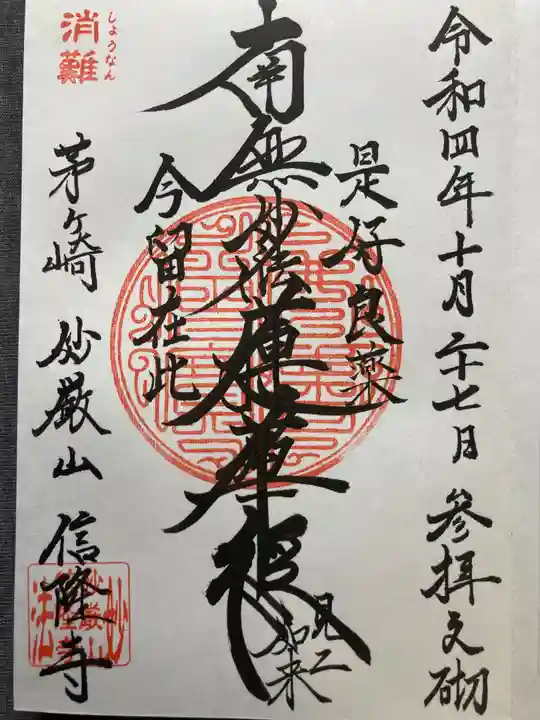 令和四年十月二十七日 参拝之砌
是好良薬
南無妙法蓮華経
見二
如来
今留在此
しょうなん
消難
茅ヶ崎 妙厳山 信隆寺